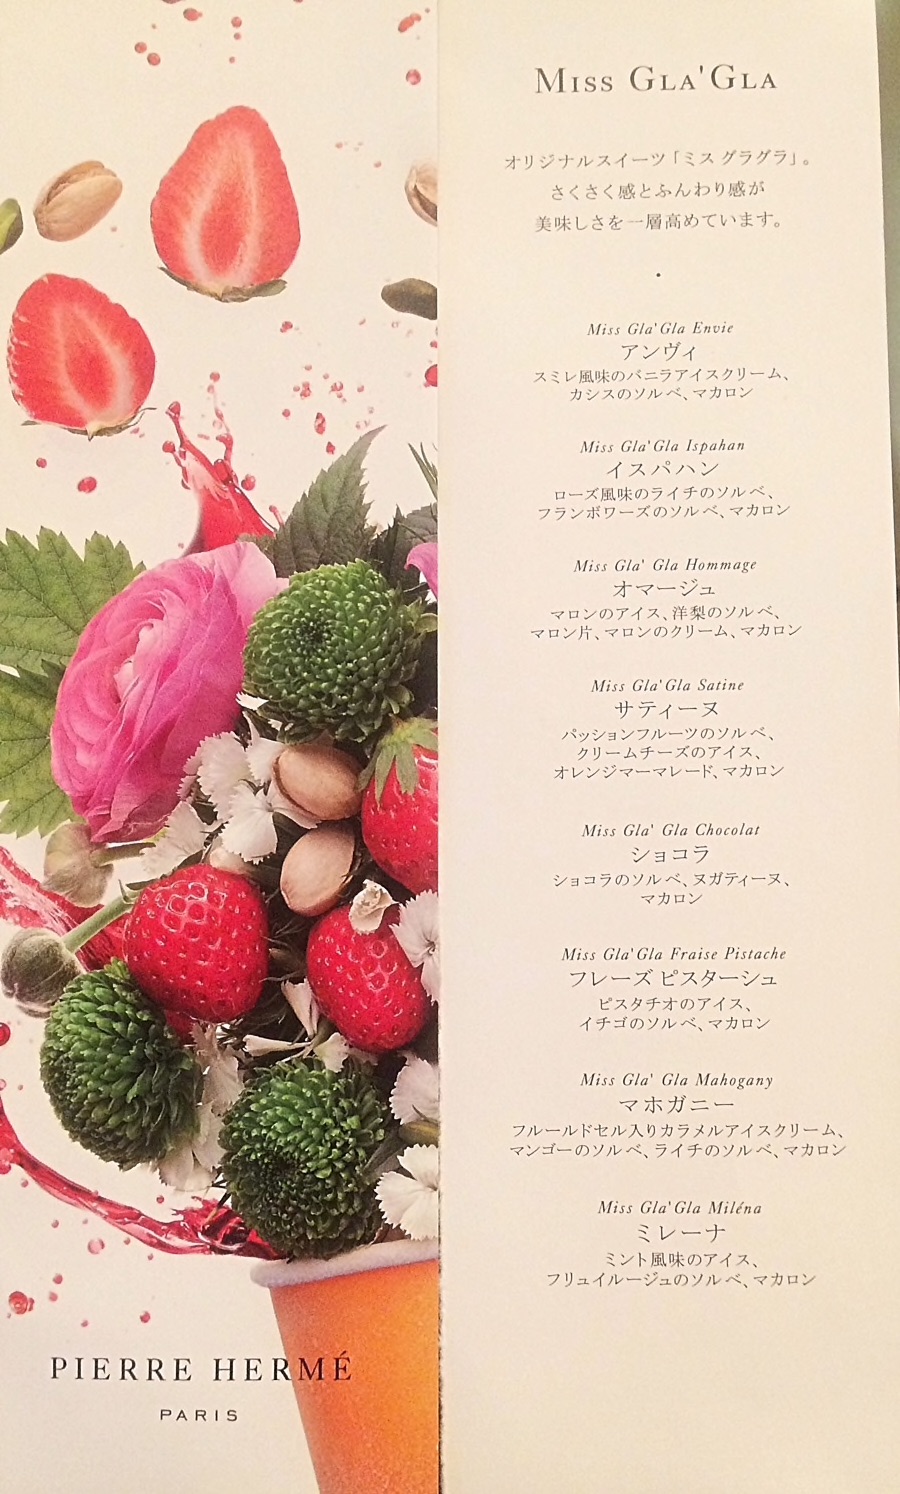 PIERRE HERMÉ
PARIS
Miss Gla'Gla
オリジナルスイーツ「ミス グラグラ」。
さくさく感とふんわり感が
美味しさを一層高めています。
Miss Gla'Gla Envie
アンヴィ
スミレ風味のバニラアイスクリーム、
カシスのソルベ、マカロン
Miss Gla'Gla Ispahan
イスパハン
ローズ風味のライチのソルベ、
フランボワーズのソルベ、マカロン
Miss Gla' Gla Hommage
オマージュ
マロンのアイス、洋梨のソルベ、
マロン片、マロンのクリーム、マカロン
Miss Gla'Gla Satine
サティーヌ
パッションフルーツのソルベ、
クリームチーズのアイス、
オレンジマーマレード、マカロン
Miss Gla' Gla Chocolat
ショコラ
ショコラのソルベ、ヌガティーヌ、
マカロン
Miss Gla'Gla Fraise Pistache
フレーズ ピスターシュ
ピスタチオのアイス、
イチゴのソルベ、マカロン
Miss Gla' Gla Mahogany
マホガニー
フルールドセル入りカラメルアイスクリーム、
マンゴーのソルベ、ライチのソルベ、マカロン
Miss Gla'Gla Miléna
ミレーナ
ミント風味のアイス、
フリュイルージュのソルベ、マカロン